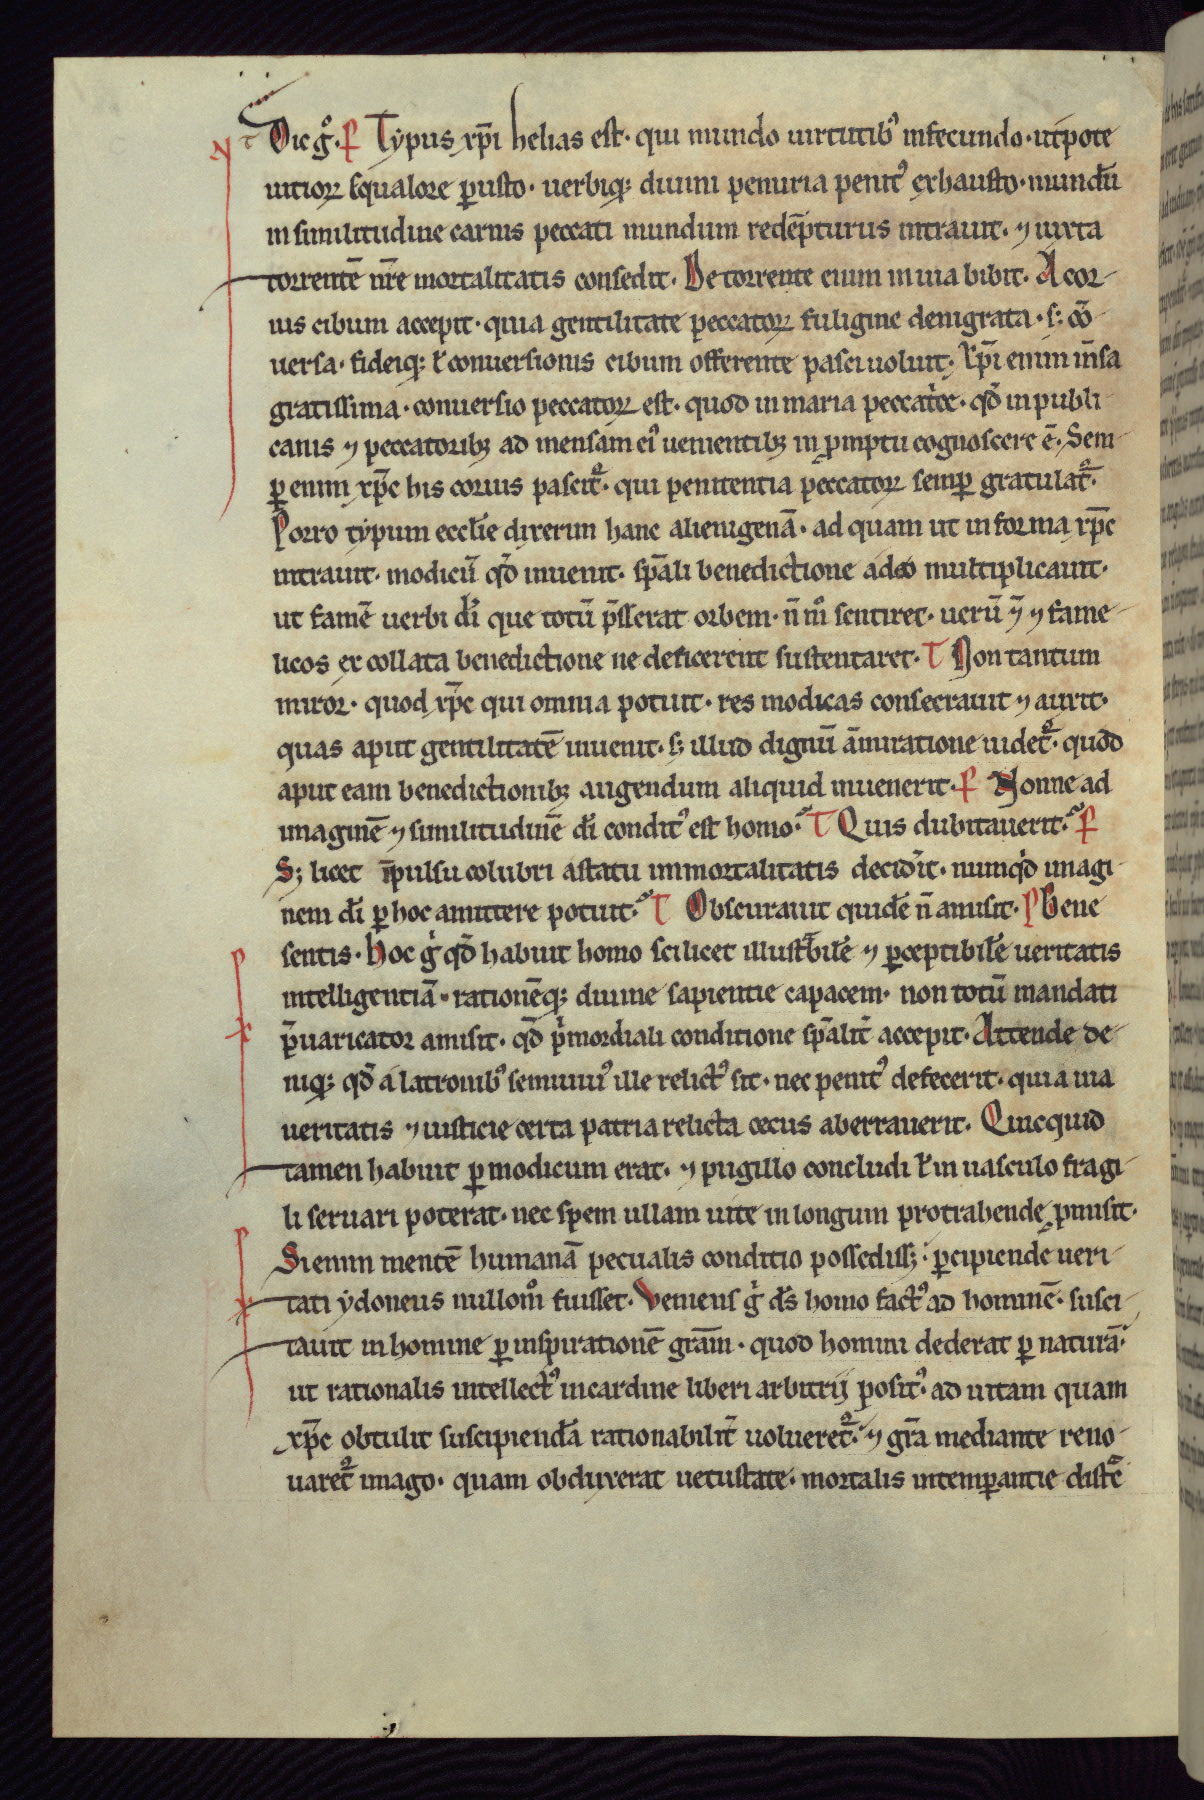 Dic g̊. P Typus xp̄i helias est· qui mundo uirtutibꝰ infecundo· utpote
uitioꝝ squalore ꝑusto· uerbiqꝫ diuini penuria penitꝰ exhausto· mundū
in similitudine carnis peccati mundum redēpturus intrauit· ⁊ iuxta
torrentē nr̄e mortalitatis consedit. De torrente enim in uia bibit. A cor-
uis cibum accepit· quia gentilitate peccatoꝝ fuligine denigrata· sꝫ cō-
uersa· fideiqꝫ ꝉ conuersionis cibum offerente pasci uoluit. Xp̄i enim m̄sa
gratissima· conuersio peccatoꝝ est· quod in maria peccat͛ce· qd̄ in publi-
canis ⁊ peccatoribꝫ ad mensam eiꝰ uenientibꝫ in ꝓmptu cognoscere ē. Sem-
ꝑ enim xp̄c his coruis pascit᷑· qui penitentia peccatoꝝ semꝑ gratulat᷑.
Porro typum eccl̄ie dixerim hanc alienigenā· ad quam ut in forma xp̄c
intrauit· modicū qd̄ inuenit· sp̄ali benedictione adeo multiplicauit·
ut famē uerbi dī que totū p̄sserat orbem· n̄ m̊ sentiret· uerū ⁊̄ ⁊ fame-
licos ex collata benedictione ne deficerent sustentaret. T Non tantum
miror· quod xp̄c qui omnia potuit· res modicas consecrauit ⁊ auxit·
quas aput gentilitatē inuenit· sꝫ illud dignū āmiratione uidet᷑· quod
aput eam benedictionibꝫ augendum aliquid inuenerit. P Nonne ad
imaginē ⁊ similitudinē dī conditꝰ est homo? T Quis dubitauerit? P
Sꝫ licet īpulsu colubri a statu immortalitatis decid͛it· numqͥd imagi-
nem dī ꝑ hoc amittere potuit? T Obscurauit quidē n̄ amisit. P Bene
sentis. Hoc gͥ qd̄ habuit homo scilicet illustͣbilē ⁊ ꝑceptibilē ueritatis
intelligentiā· rationēqꝫ diuine sapientie capacem· non totū mandati
p̄uaricator amisit· qd̄ pͥmordiali conditione sp̄alit͛ accepit. Attende de-
niqꝫ qd̄ a latronibꝰ semiuiuꝰ ille relictꝰ sit· nec penitꝰ defecerit· qui a uia
ueritatis ⁊ iusticie certa patria relicta cecus aberrauerit. Quicquid
tamen habuit ꝑmodicum erat· ⁊ pugillo concludi ꝉ in uasculo fragi-
li seruari poterat· nec spem ullam uite in longum protrahende ꝓmisit.
Si enim mentē humanā pecualis conditio possedissꝫ· ꝑcipiende ueri-
tati ydoneus nullom̊ fuisset. Veniens gͥ ds̄ homo factꝰ ad hominē· susci-
tauit in homine ꝑ inspirationē gr̄am· quod homini dederat ꝑ naturā·
ut rationalis intellectꝰ in cardine liberi arbitrij positꝰ· ad uitam quam
xp̄c obtulit suscipiendā rationabilit͛ uolueret᷑· ⁊ gr̄a mediante reno-
uaret᷑ imago· quam obduxerat uetustate· mortalis intemꝑantie distē